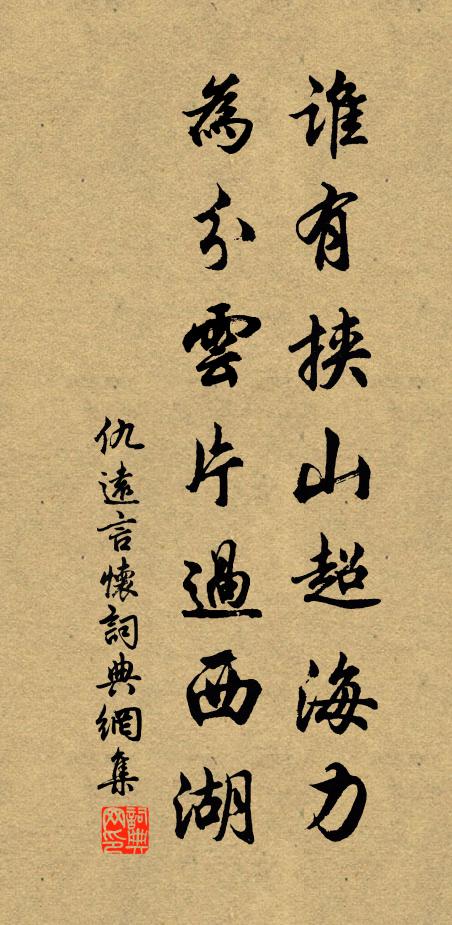 誰有挾山超海力
為分雲片過西湖
仇遠言懷詞典網集
詞典網印